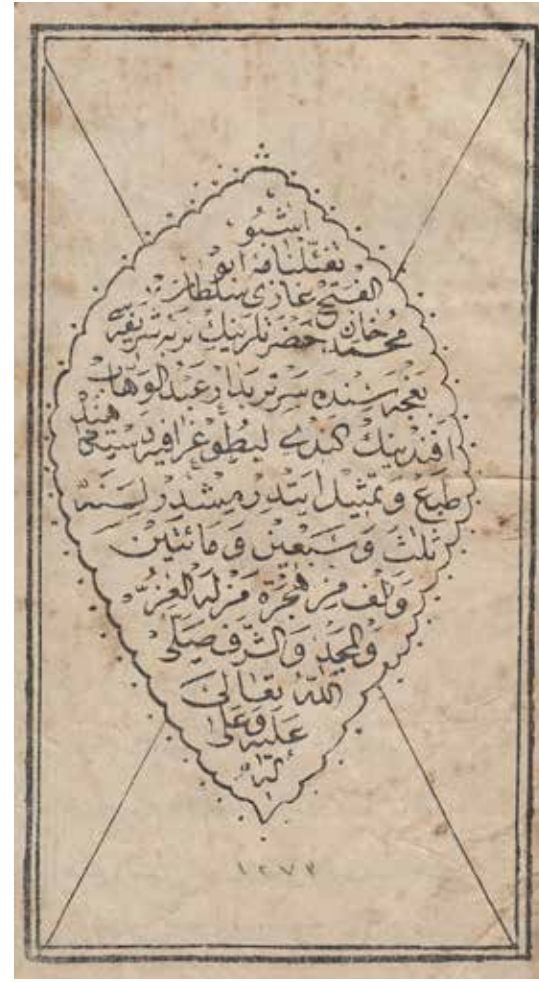 اشبو
تفئلنامه ابو
الفتح غازى سلطان
محمد خان حضرتلرينك تربه شريفه سى
بغچه سنده سر تربدار عبد الوهاب
افندينك كندى ليطوغرافيه دستكاهنده
طبع و تمثيل ايتدرمشدر لسنة
ثلث وسبعين ومائتين
والف من هجرة من له العز
والمجد والشرف صلى
الله تعالى
عليه وعلى
اله
١٢٧٣